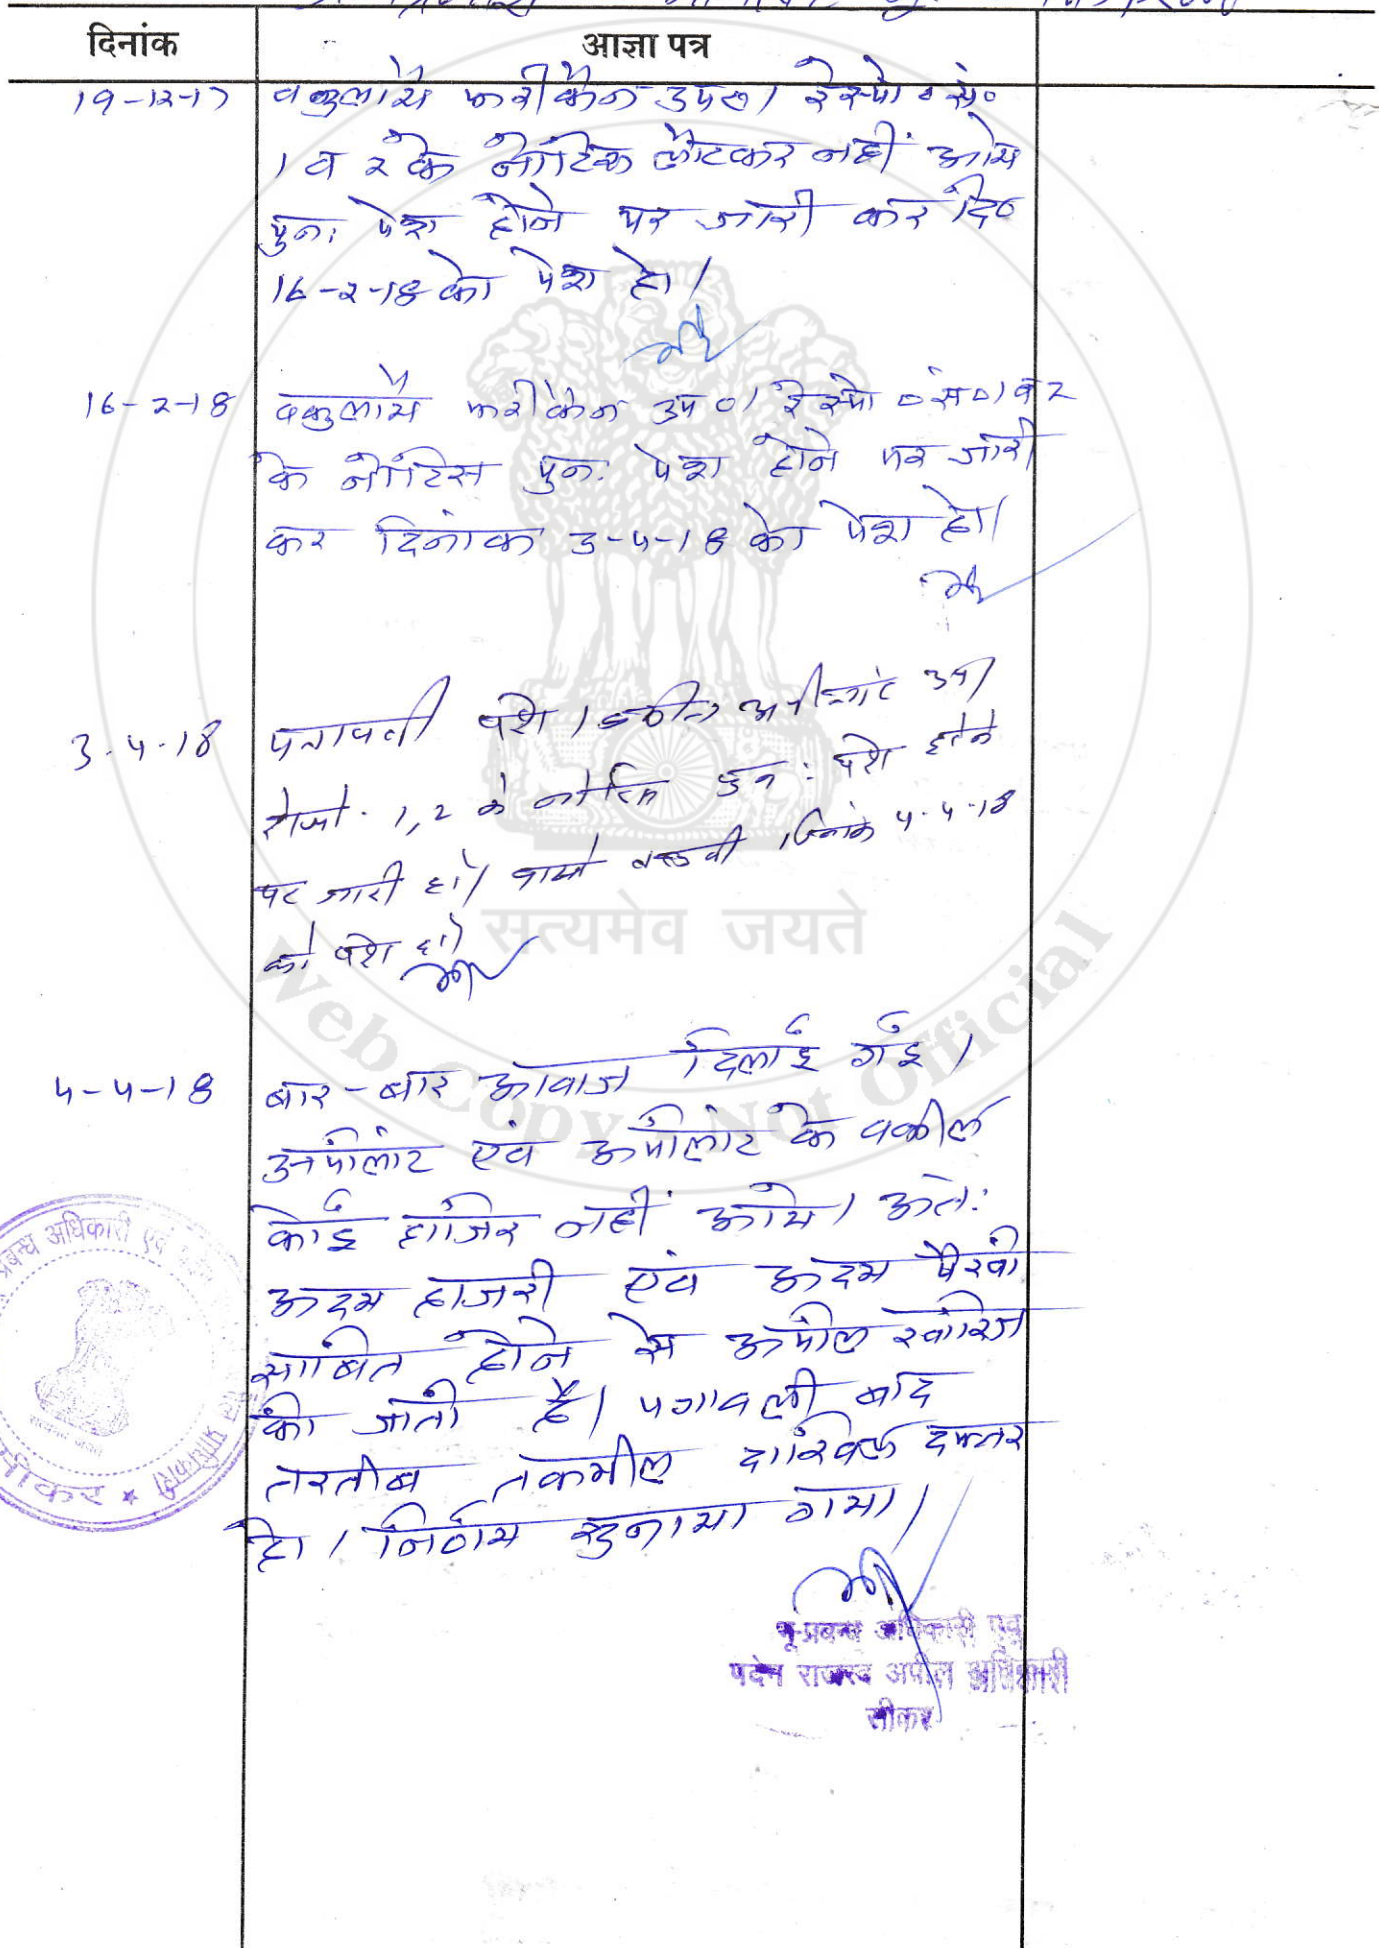 दिनांक
आज्ञा पत्र
19-12-17
वकुलाय फरीकैन उप०। रेस्पो० सं०
1 व 2 के नोटिस लौटकर नहीं आये
पुनः पेश होने पर जारी कर दि०
16-2-18 को पेश हो।
16-2-18
वकुलाय फरीकैन उप०। रेस्पो० सं० 1 व 2
के नोटिस पुनः पेश होने पर जारी
कर दिनांक 3-4-18 को पेश हो।
3-4-18
पत्रावली पेश। वकील अपीलांट उप।
रेस्पो. 1, 2 के नोटिस पुनः पेश होने
पर जारी हो। वास्ते तलबी दिनांक 4-4-18
को पेश हो
सत्यमेव जयते
Web Copy - Not Official
4-4-18
बार-बार आवाज दिलाई गई।
अपीलांट एवं अपीलांट के वकील
कोई हाजिर नहीं आये। अतः
अदम हाजरी एवं अदम पैरवी
साबित होने से अपील खारिज
की जाती है। पत्रावली बाद
तरतीब तकमील दाखिल दफ्तर
हो। निर्णय सुनाया गया।
प्रबन्ध अधिकारी एवं
सीकर
भू-प्रबन्ध अधिकारी एवं
पदेन राजस्व अपील अधिकारी
सीकर